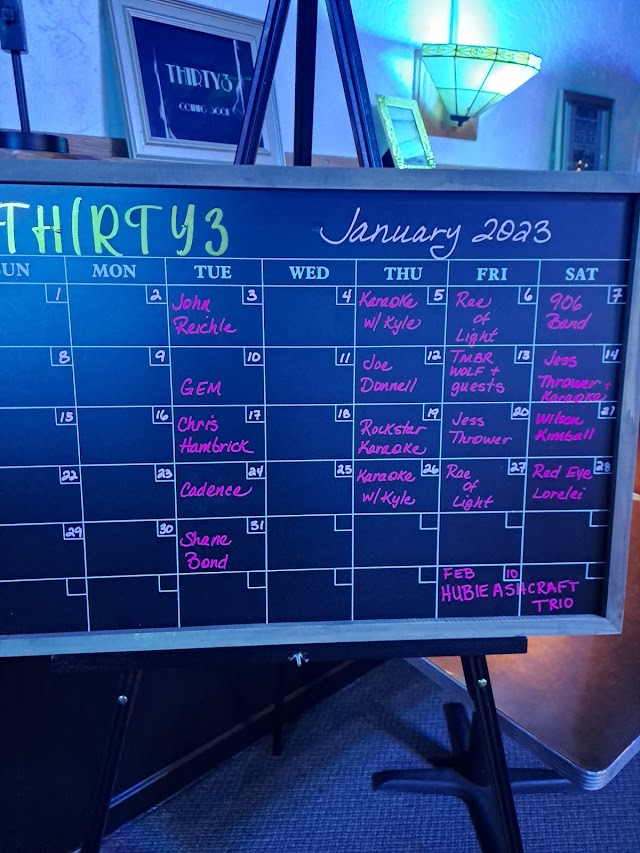 THIRTY3
COMING SOON
THIRTY3 January 2023
SUN MON TUE WED THU FRI SAT
1 2 3 4 5 6 7
John
Reichle
Karaoke
w/ Kyle
Rae
of
Light
906
Band
8 9 10 11 12 13 14
GEM
Joe
Donnell
TMBR
WOLF +
guests
Jess
Thrower +
Karaoke
15 16 17 18 19 20 21
Chris
Hambrick
Rockstar
Karaoke
Jess
Thrower
Wilson
Kimball
22 23 24 25 26 27 28
Cadence
Karaoke
w/ Kyle
Rae
of
Light
Red Eye
Lorelei
29 30 31
Shane
Bond
FEB 10
HUBIE ASHCRAFT
TRIO